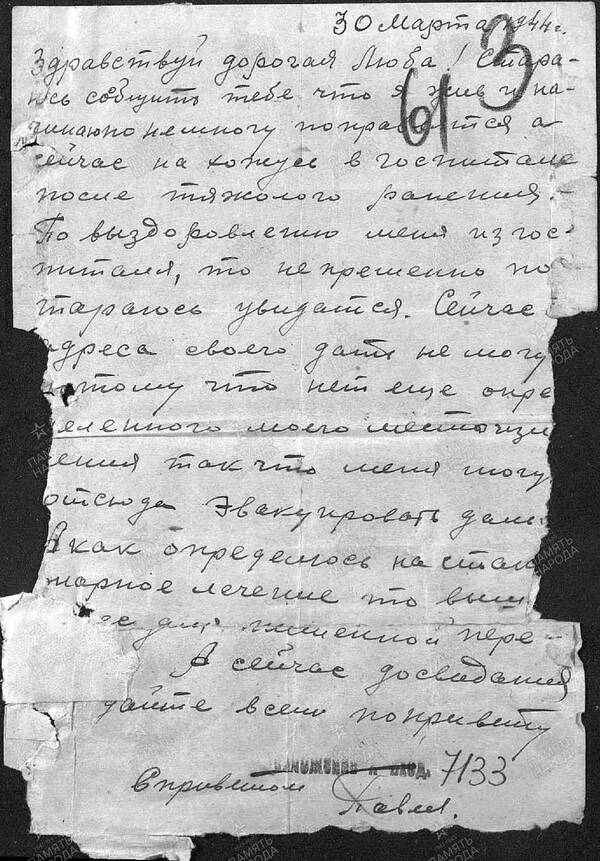 30 Марта 1944 г.
613
Здравствуй дорогая Люба! Стара-
юсь сообщить тебе что я жив и на-
чинаю понемногу поправлятся а
сейчас нахожусь в госпитале
после тяжолого ранения.
По выздоровлению меня из гос-
питаля, то непременно по
стараюсь увидатся. Сейчас
адреса своего дать не могу
потому что нет еще опре
деленного моего местожи
тения так что меня могу
отсюда эвакуировать даль
А как определюсь на стац
онарное лечение то выш
пере-
А сейчас досвидания
дайте всем по привету
7133
С приветом Павел.
ПАМЯТЬ НАРОДА